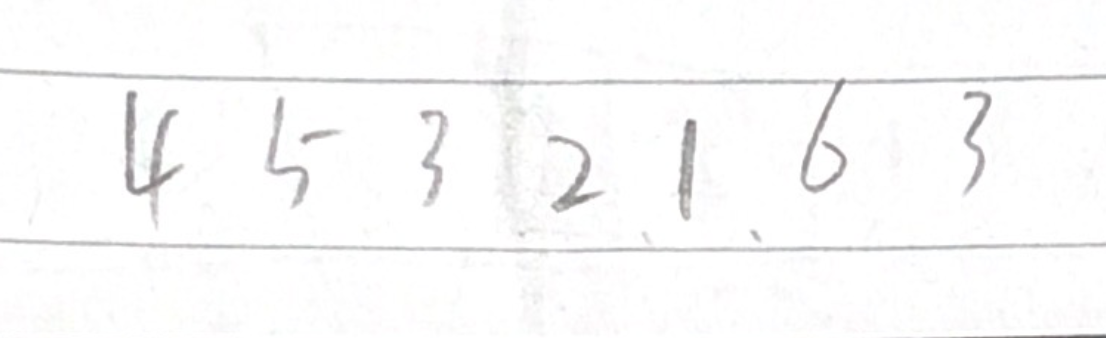 4 5 3 2 1 6 3